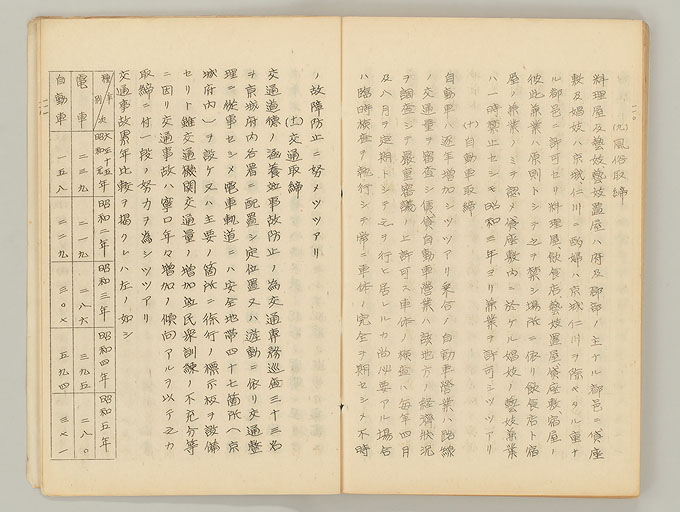 (九)風俗取締
料理屋及藝妓藝妓置屋ハ府及郡部ノ主ナル都邑ニ貸座
敷及娼妓ハ京城仁川ニ酌婦ハ京城仁川ヲ除キタル重ナ
ル都邑ニ許可セリ料理屋、飲食店、藝妓置屋貸座敷、宿屋ノ
彼此兼業ハ原則トシテ之ヲ禁シ場所ニ依リ飲食店ト宿
屋ノ兼業ノミヲ認メ貸座敷内ニ於ケル娼妓ノ藝妓兼業
ハ一時禁止セシモ昭和三年ヨリ兼業ヲ許可シツツアリ
(十)自動車取締
自動車ハ逐年増加シツツアリ乗合自動車營業ハ路線
ノ交通量ヲ審査シ賃貸自動車營業ハ該地方ノ經濟狀況
ヲ調査シテ嚴重審議ノ上許可ス車体ノ檢査ハ毎年四月
及八月ヲ定期トシテ之ヲ行ヒ居レルカ尚必要アル場合
ハ臨時檢査ヲ執行シテ常ニ車体ノ完全ヲ期セシメ不時
ノ故障防止ニ努メツツアリ
(土)交通取締
交通道德ノ涵養並事故防止ノ為交通專務巡査三十三名
ヲ京城府内各署ニ配置シ定位置又ハ遊動ニ依リ交通整
理ニ從事セシメ電車軌道ニハ安全地帶四十七箇所(京
城府内)ヲ設ケ又ハ主要ノ箇所ニ徐行ノ標示板ヲ設備
セリト雖交通機關交通量ノ増加並民衆訓練ノ不充分等
ニ因リ交通事故ハ寧ロ年々増加ノ傾向アルヲ以テ之カ
取締ニ付一段ノ努力ヲ為シツツアリ
交通事故累年比較ヲ掲クレハ左ノ如シ
種別 年次 大正十五年 昭和元年 昭和二年 昭和三年 昭和四年 昭和五年
電車 二二九 二一九 二八六 三九五 二八〇
自動車 一五八 二二九 三〇六 五九四 三六一